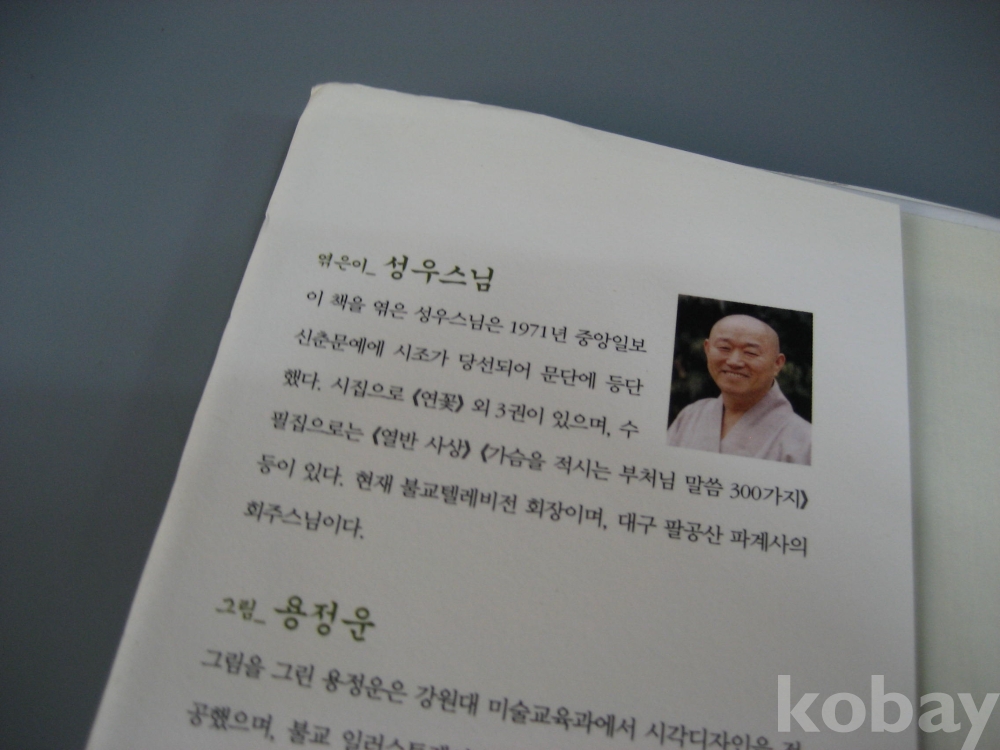 엮은이_ 성우스님
이 책을 엮은 성우스님은 1971년 중앙일보
신춘문예에 시조가 당선되어 문단에 등단
했다. 시집으로 《연꽃》 외 3권이 있으며, 수
필집으로는 《열반 사상》 《가슴을 적시는 부처님 말씀 300가지》
등이 있다. 현재 불교텔레비전 회장이며, 대구 팔공산 파계사의
회주스님이다.
그림_ 용정운
그림을 그린 용정운은 강원대 미술교육과에서 시각디자인을
공했으며, 불교
kobay